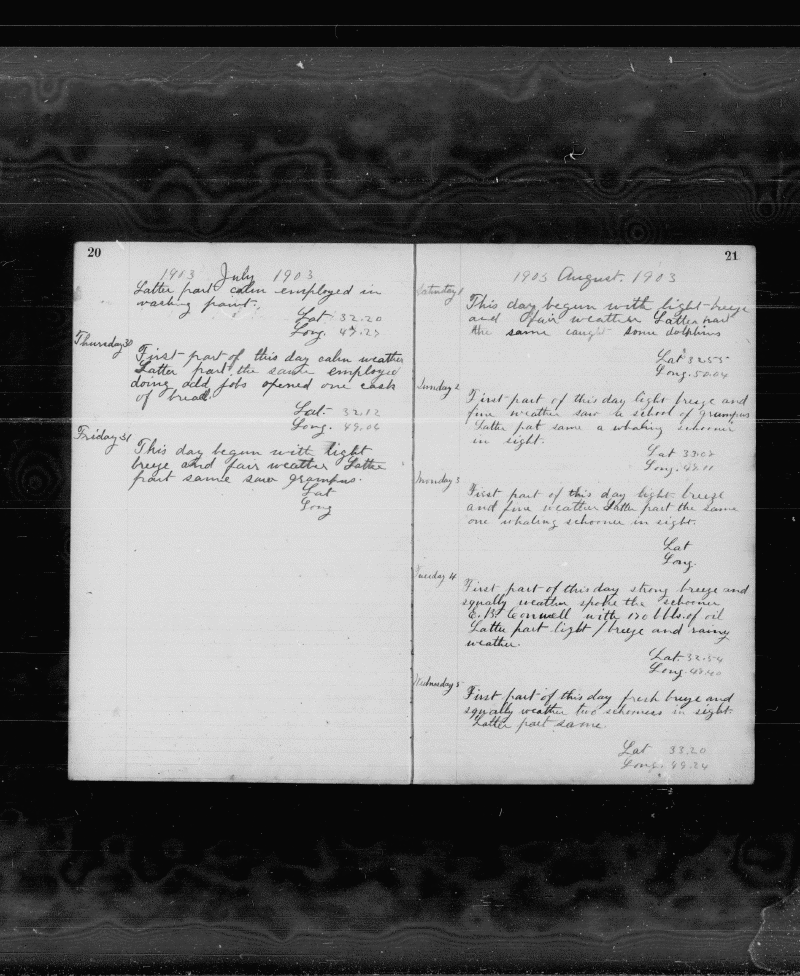 20
1903 July 1903
Latter part calm employed in
washing paint.
Lat 32.20
Long. 49.27
Thursday 30
First part of this day calm weather
Latter part the same employed
doing odd jobs opened one cask
of bread.
Lat- 32.12
Long. 49.06
Friday 31
This day begun with light
breeze and fair weather Latter
part same saw grampus.
Lat
Long
21
1903 August. 1903
Saturday 1
This day begun with light breeze
and fair weather Latter part
the same caught some dolphins
Lat 32.55
Long. 50.04
Sunday 2
First part of this day light breeze and
fine weather saw a school of grampus
Latter pat same a whaling schooner
in sight.
Lat 33.02
Long. 49.11
Monday 3
First part of this day light breeze
and fine weather Latter part the same
one whaling schooner in sight.
Lat
Long.
Tuesday 4.
First part of this day strong breeze and
squally weather spoke the schooner
E. B. Conwell with 120 bbls. of oil
Latter part light breeze and rainy
weather.
Lat. 32.54
Long. 49.40
Wednesday 5
First part of this day fresh breeze and
squally weather two schooners in sight.
Latter part same.
Lat 33.20
Long. 49.24